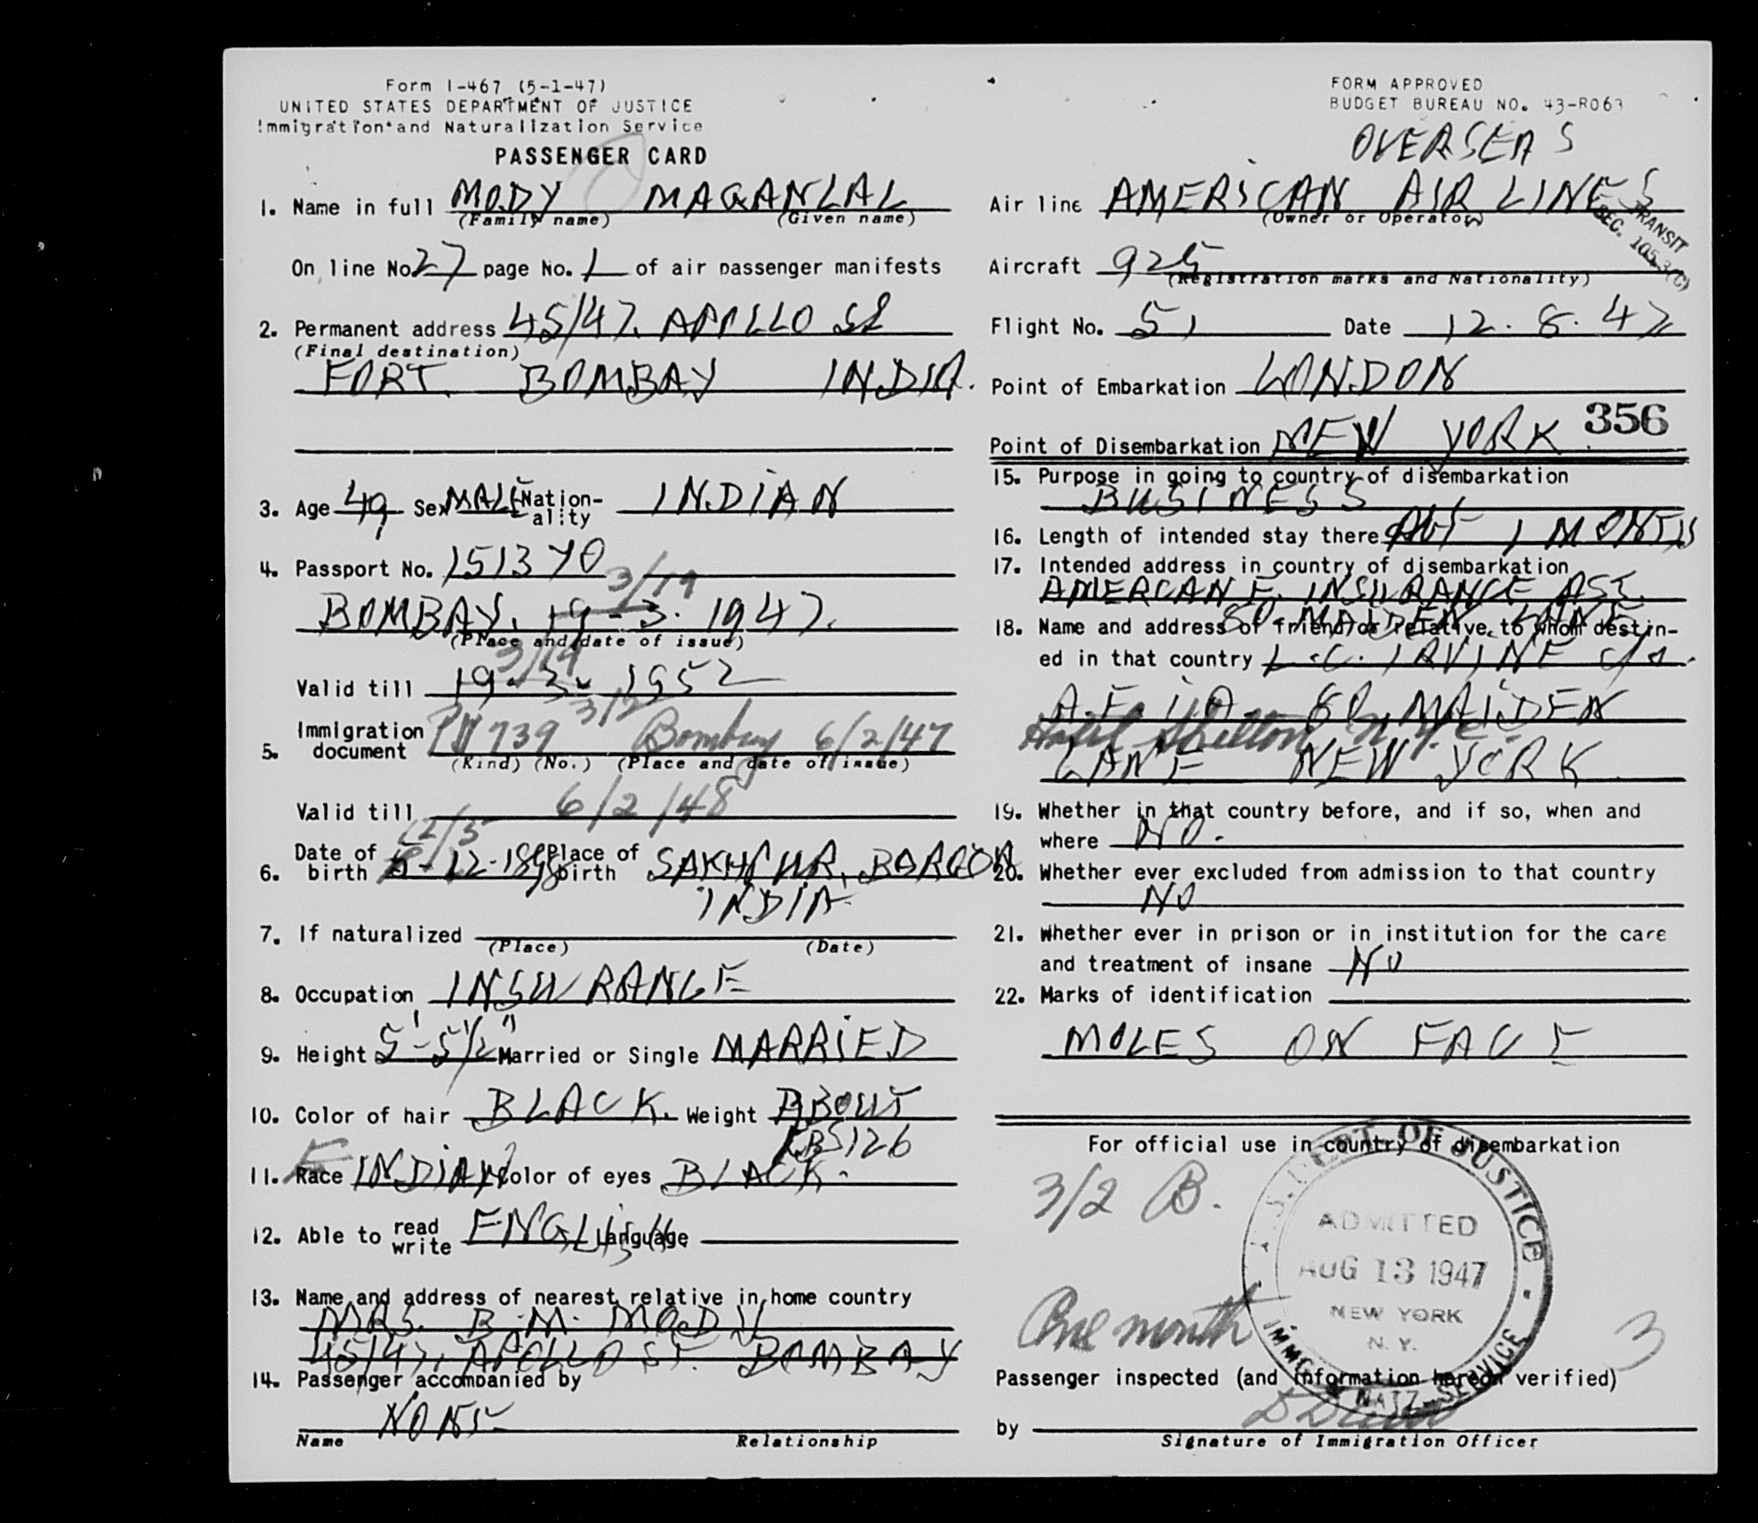 Form I-467 (5-1-47)
UNITED STATES DEPARTMENT OF JUSTICE
Immigration and Naturalization Service
PASSENGER CARD
1. Name in full MODY MAGANLAL
(Family name) (Given name)
On line No. 27 page No. 1 of air passenger manifests
2. Permanent address 45/47. APOLLO St
(Final destination)
FORT. BOMBAY INDIA.
3. Age 49 Sex MALE Nationality INDIAN
4. Passport No. 151370
3/19
BOMBAY. 19-3. 1947.
(Place and date of issue)
3/19
Valid till 19-3-1952
3/2
5. Immigration document 739 Bombay 6/2/47
(Kind) (No.) (Place and date of issue)
Valid till 6/2/48
12/5
6. Date of birth 5-12-1898 Place of birth SAKHPUR, BARODA
INDIA
7. If naturalized
(Place) (Date)
8. Occupation INSURANCE
9. Height 5'-5½" Married or Single MARRIED
10. Color of hair BLACK. Weight ABOUT
LBS 126
11. Race INDIAN Color of eyes BLACK.
12. Able to read write ENGLISH. Language
13. Name and address of nearest relative in home country
MRS. B.M. MODY
45/47, APOLLO ST. BOMBAY
14. Passenger accompanied by
NONE
Name Relationship
FORM APPROVED
BUDGET BUREAU NO. 43-R063
OVERSEAS
Air line AMERICAN AIR LINES
(Owner or Operator)
TRANSIT
SEC. 105.3(C)
Aircraft 925
(Registration marks and Nationality)
Flight No. 51 Date 12.8.47
Point of Embarkation LONDON
Point of Disembarkation NEW YORK 356
15. Purpose in going to country of disembarkation
BUSINESS
16. Length of intended stay there ABT 1 MONTH
17. Intended address in country of disembarkation
AMERCAN F. INSURANCE AST.
80. MAIDEN LANE
18. Name and address of friend or relative to whom destined in that country L.C. IRVINE c/o.
A.F.I.A 80 MAIDEN
Hotel Shelton N.Y.C.
LANE NEW YORK
19. Whether in that country before, and if so, when and
where NO.
20. Whether ever excluded from admission to that country
NO
21. Whether ever in prison or in institution for the care
and treatment of insane NO
22. Marks of identification
MOLES ON FACE
For official use in country of disembarkation
3/2 B.
U.S. DEPT. OF JUSTICE
ADMITTED
AUG 13 1947
NEW YORK
N.Y.
IMMG. & NATZ. SERVICE
One month
3
Passenger inspected (and information hereon verified)
by
Signature of Immigration Officer